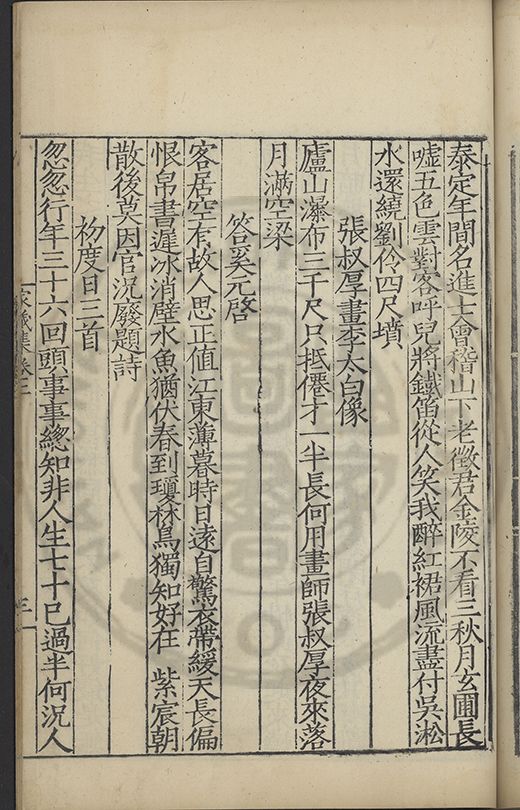 泰定年間名進士會稽山下老徵君金陵不看三秋月玄圃長
噓五色雲對客呼兒將鐵笛從人笑我醉紅裙風流盡付吳淞
水還繞劉伶四尺墳
張叔厚畫李太白像
廬山瀑布三千尺只抵僊才一半長何用畫師張叔厚夜來落
月滿空梁
答奚元啓
客居空有故人思正值江東薄暮時日遠自驚衣帶緩天長偏
恨帛書遲冰消壁水魚猶伏春到瓊林鳥獨知好在 紫宸朝
散後莫因官況廢題詩
初度日三首
忽忽行年三十六回頭事事緫知非人生七十已過半何況人